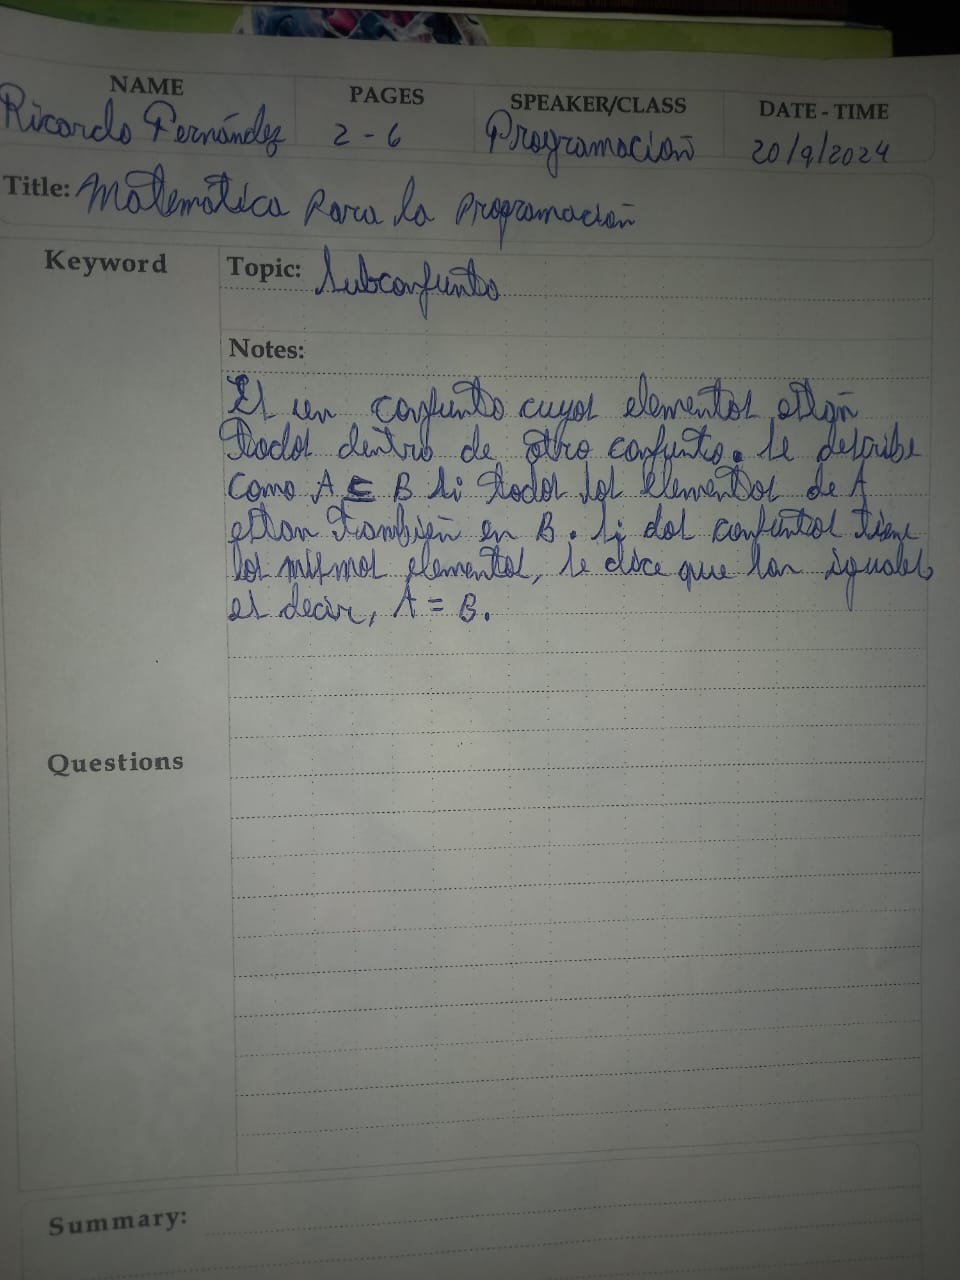 NAME PAGES SPEAKER/CLASS DATE - TIME
Ricardo Fernández 2 - 6 Programación 20/9/2024
Title: Matemática Para la Programación
Keyword
Topic: Subconjunto
Notes:
Es un conjunto cuyos elementos están
todos dentro de otro conjunto. Se describe
como A ⊆ B si todos los elementos de A
estan también en B. Si dos conjuntos tiene
los mismos elementos, se dice que son iguales,
es decir, A = B.
Questions
Summary: